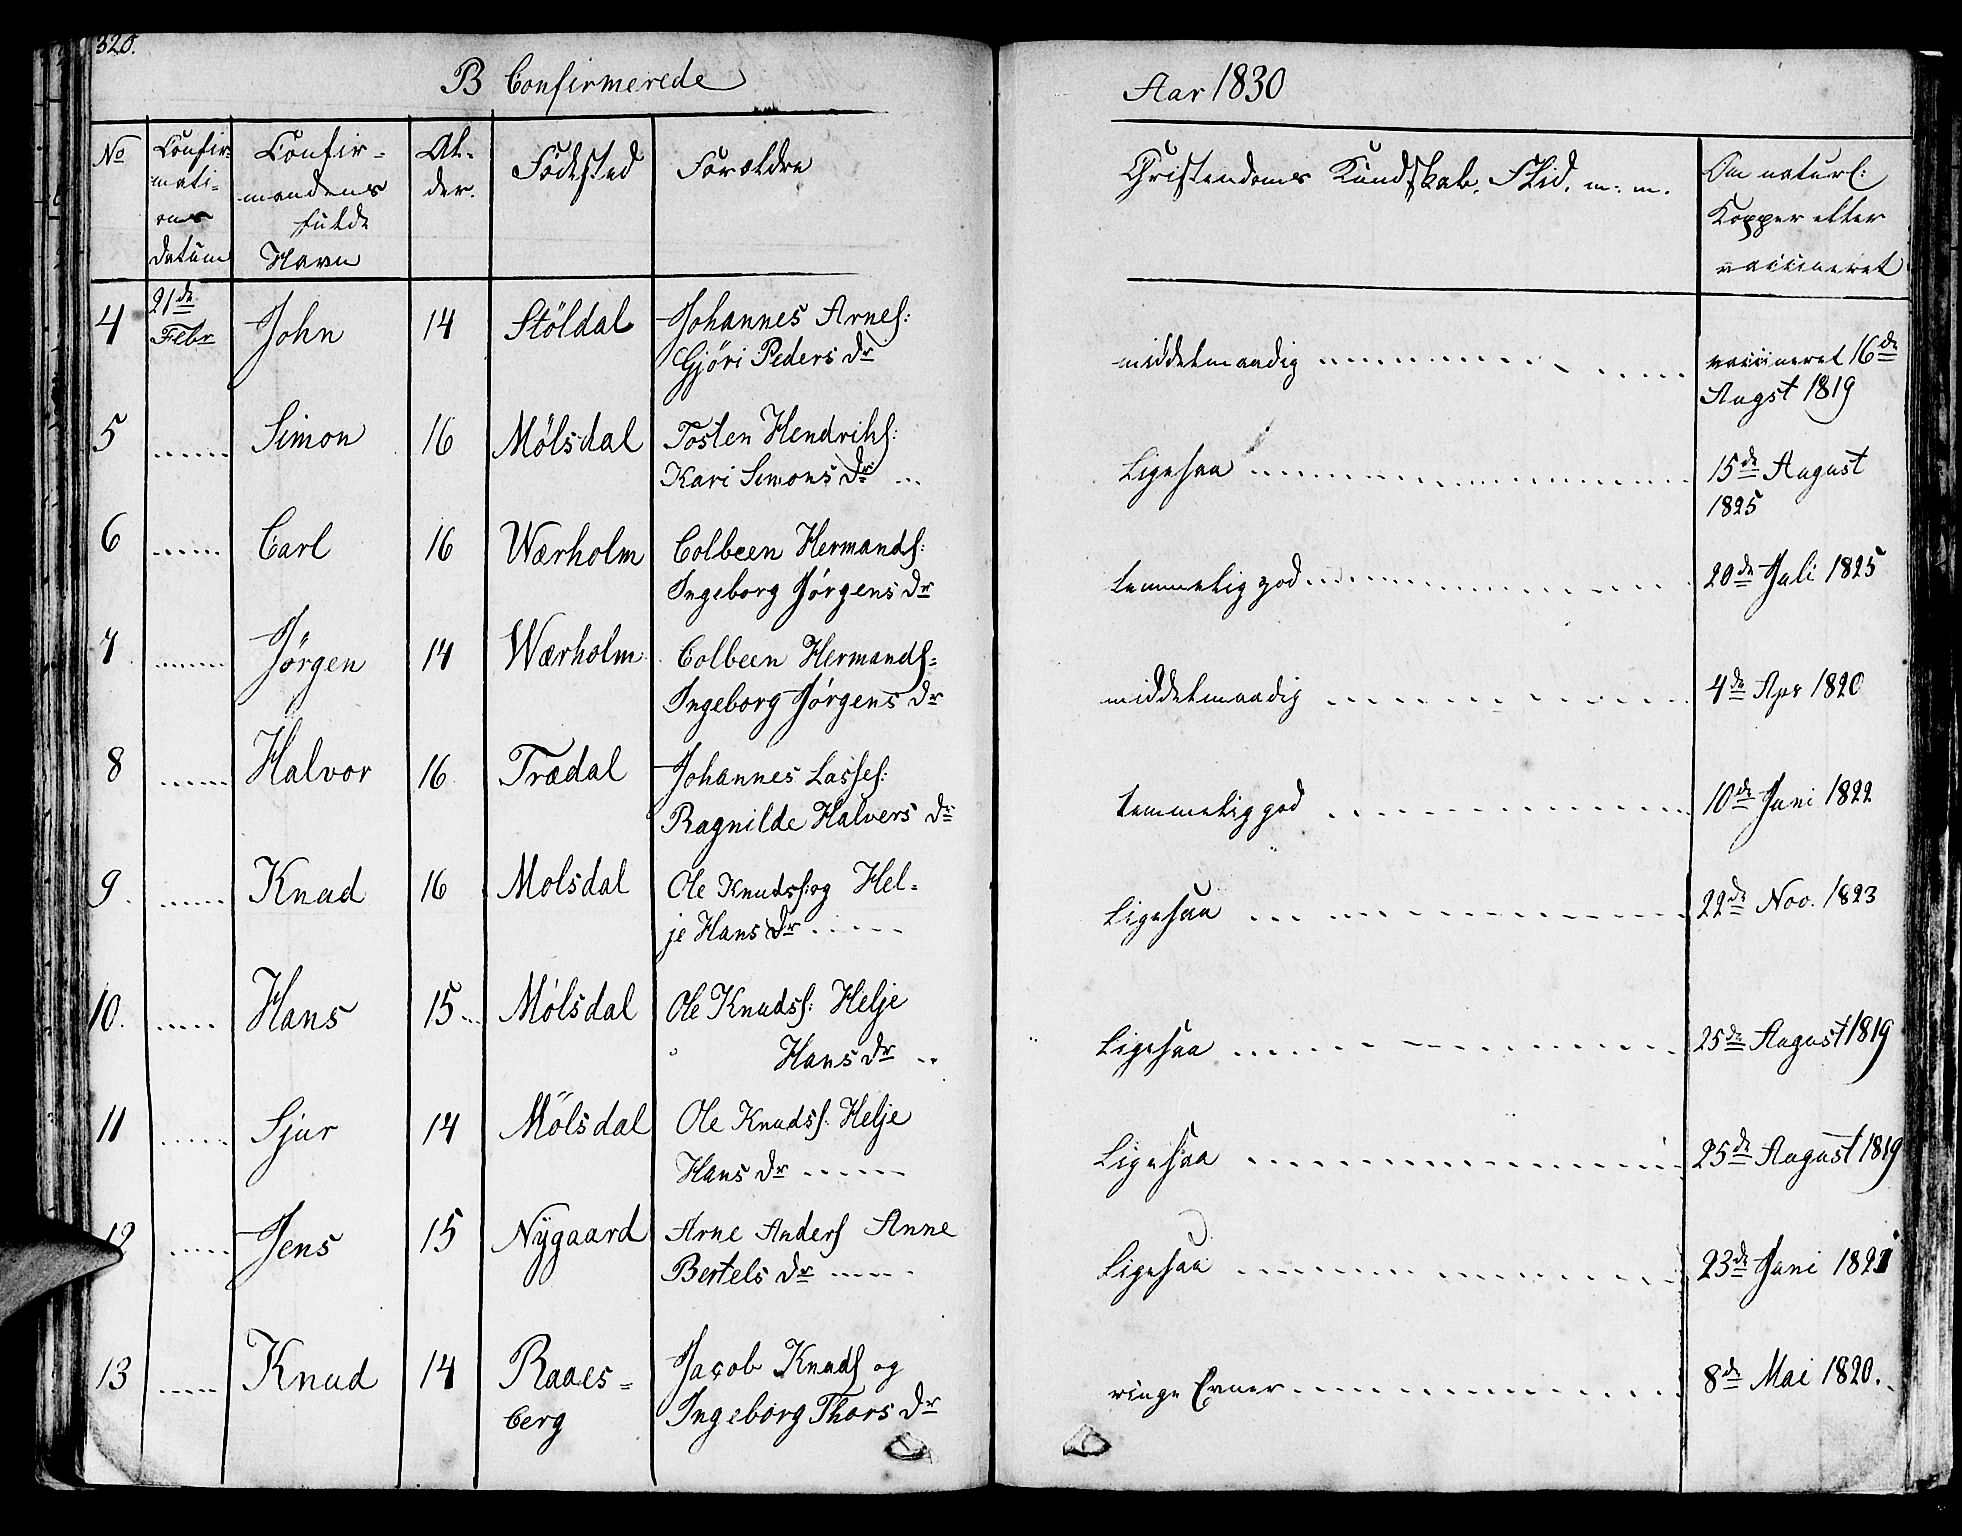 320.
B Confirmerede
Aar 1830
No
Confir-
mati-
ons
datum
Confir-
mandens
fulde
Navn
Al-
der.
Födested
Forældre
Christendoms Kundskab, Flid. m: m.
Om naturl:
Kopper eller
vaccineret
4 21de Febr John 14 Stöldal Johannes Arnes: middelmaadig vaccineret 16de
Gjöri Peders Dr Augst 1819
5 ...... Simon 16 Mølsdal Tosten Hendriks: Ligesaa 15de August
Kari Simons Dr ... 1825
6 ...... Carl 16 Wærholm Colbeen Hermands: temmelig god 20de Juli 1825
Ingeborg Jørgens Dr
7 ...... Jørgen 14 Wærholm Colbeen Hermands: middelmaadig 4de Apr 1820
Ingeborg Jørgens Dr
8 ...... Halvor 16 Trædal Johannes Lasses: temmelig god 10de Juni 1822
Ragnilde Halvers Dr
9. ...... Knud 16 Molsdal Ole Knuds: og Hel- Ligesaa 22de Nov. 1823
je Hans Dr .....
10. ..... Hans 15 Mölsdal Ole Knudss: Helje Ligesaa 25de August 1819
Hans Dr ..
11 ...... Sjur 14 Mölsdal Ole Knudss: Helje Ligesaa 25de August 1819
Hans Dr ......
12 ..... Jens 15 Nÿgaard Arne Anders Anne Ligesaa 23de Juni 1821
Bertels Dr .....
13 ..... Knud 14 Raaes- Jacob Knuds og ringe Evner 8de Mai 1820.
berg Ingeborg Thors Dr